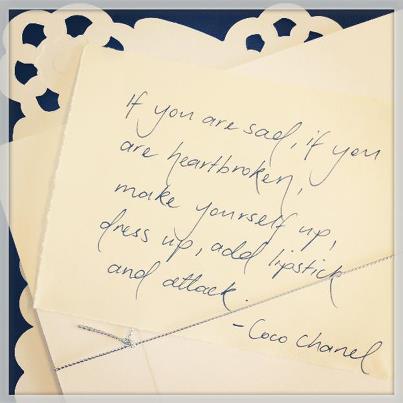 If you are sad, if you
are heartbroken,
make yourself up,
dress up, add lipstick
and attack.
-Coco Chanel